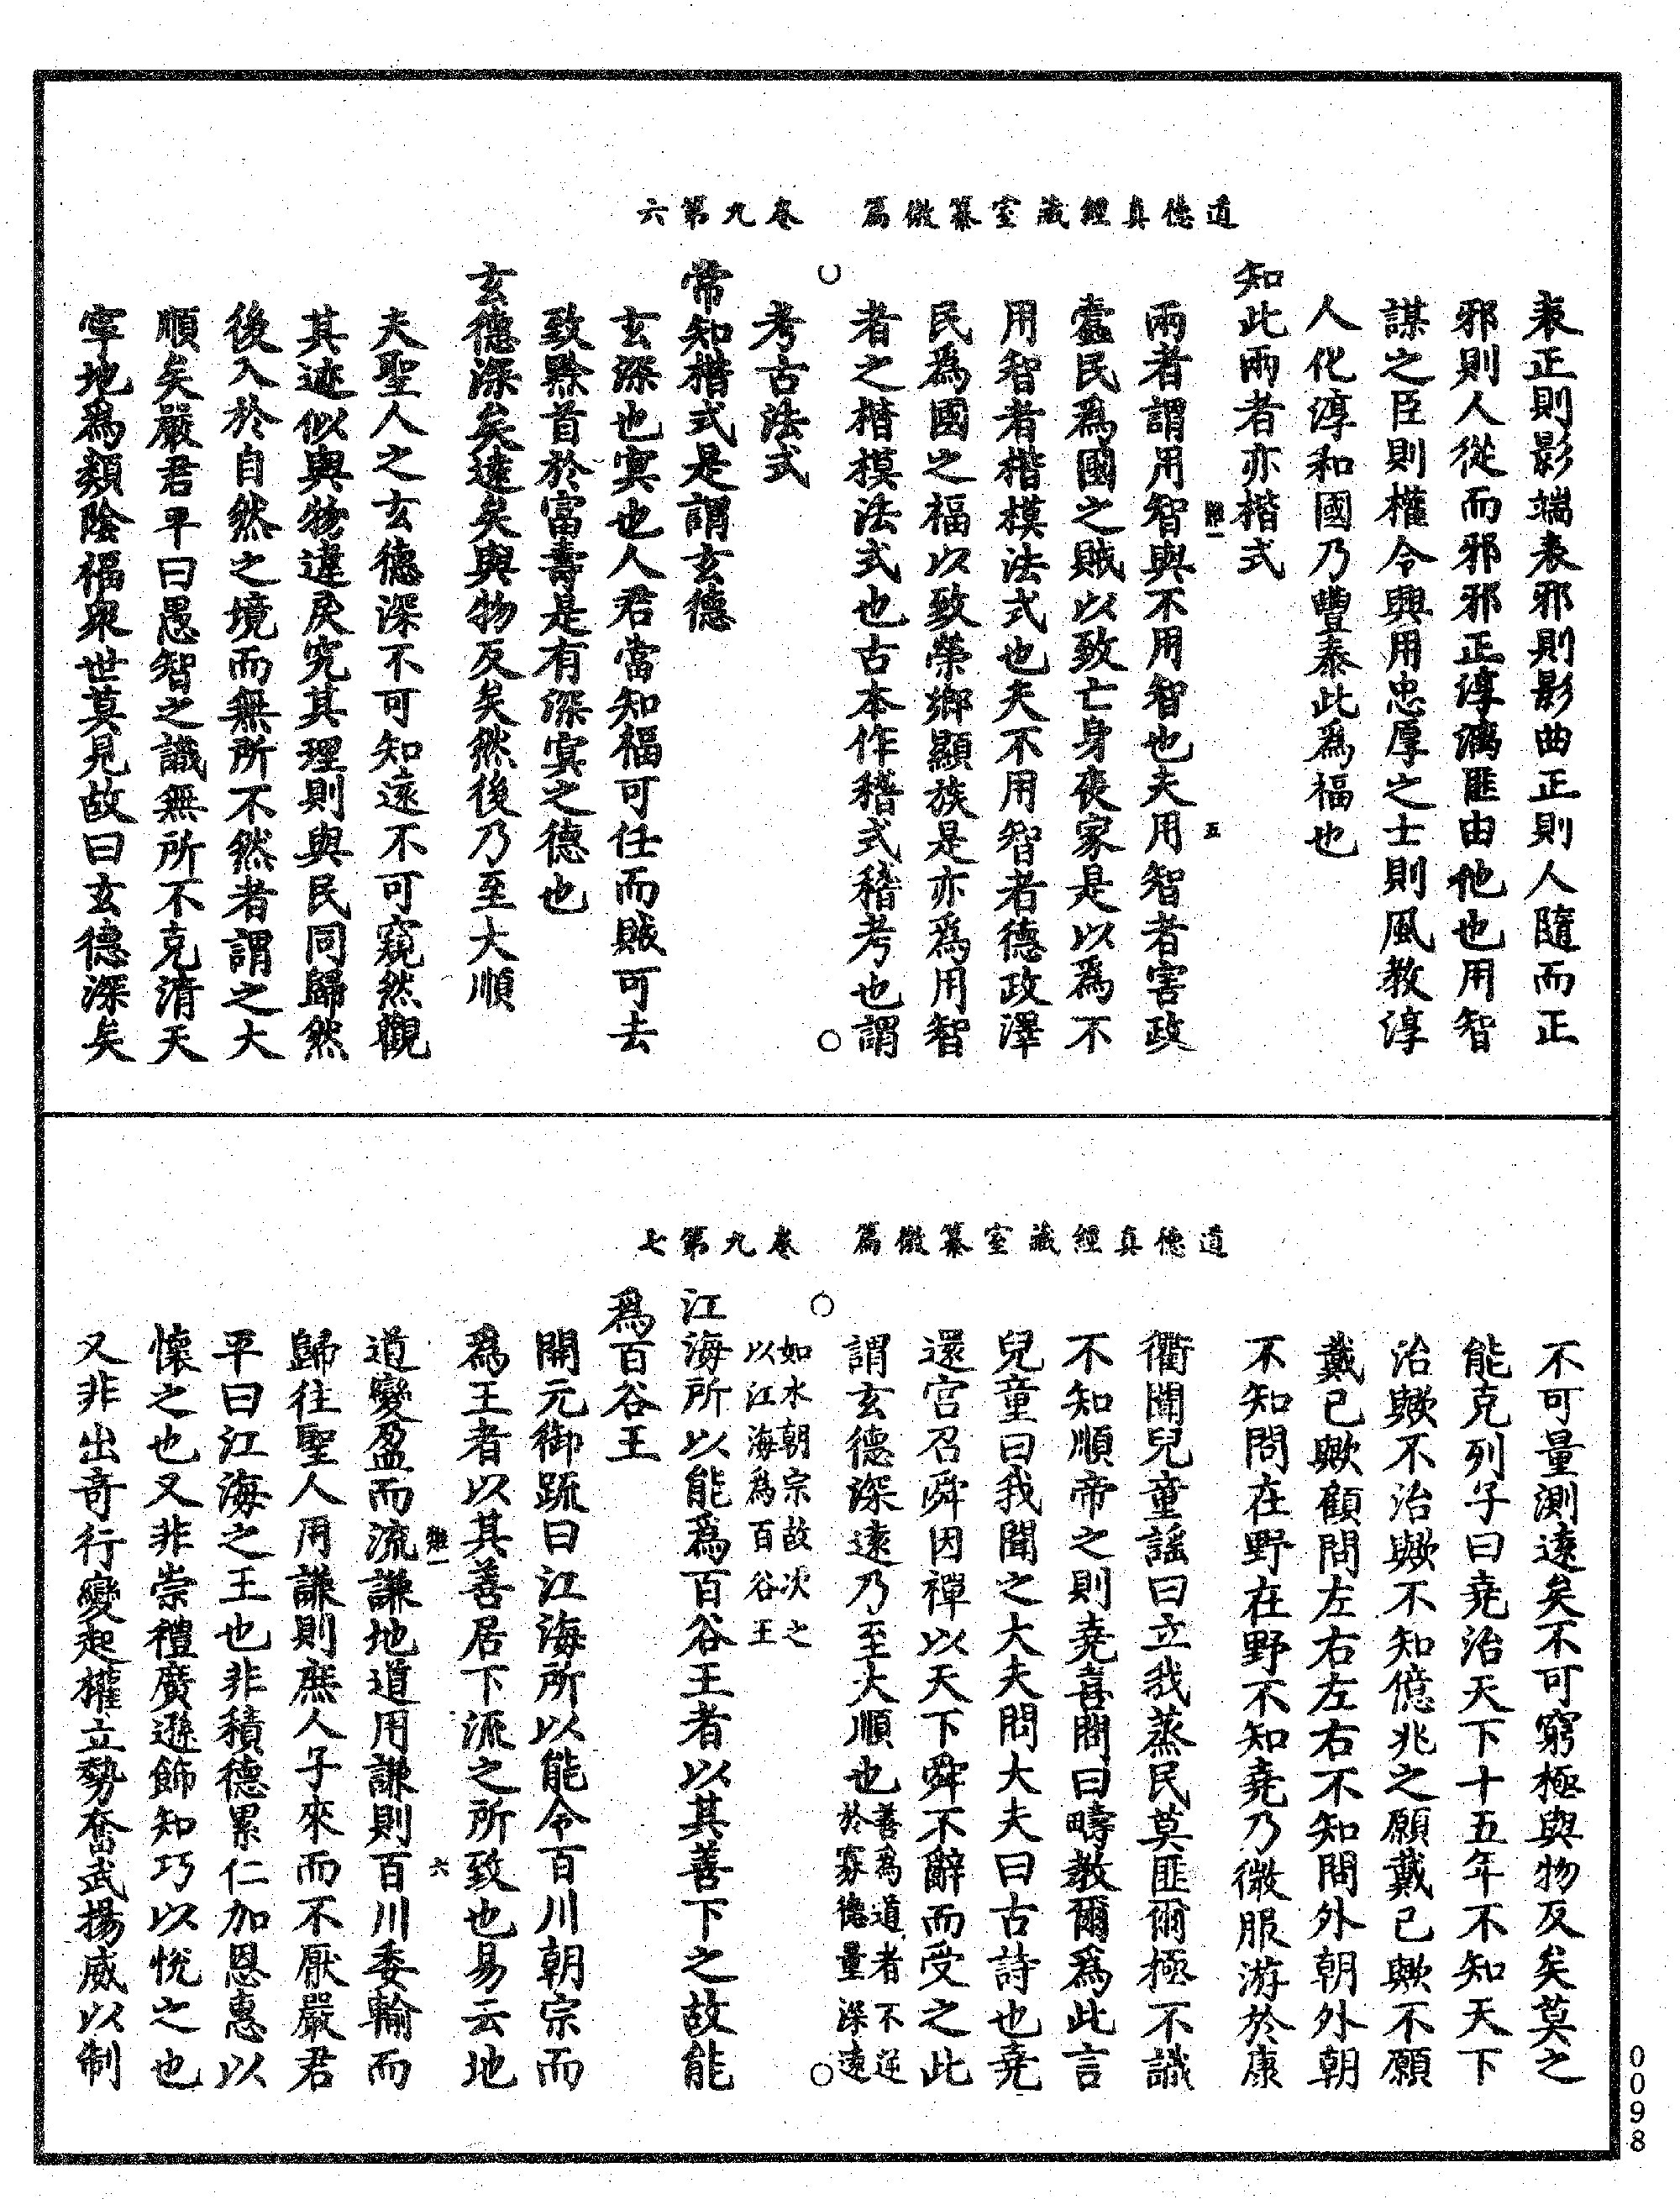 道德真經藏室纂微篇　卷九第六
表正則影端表邪則影曲正則人隨而正
邪則人從而邪邪正淳漓匪由他也用智
謀之臣則權令興用忠厚之士則風教淳
人化淳和國乃豐泰此爲福也
知此兩者亦楷式
難一　五
兩者謂用智與不用智也夫用智者害政
蠹民爲國之賊以致亡身喪家是以爲不
用智者楷模法式也夫不用智者德政澤
民爲國之福以致榮鄉顯族是亦爲用智
者之楷模法式也古本作稽式稽考也謂
考古法式
常知楷式是謂玄德
玄深也冥也人君當知福可任而賊可去
致黔首於富壽是有深冥之德也
玄德深矣遠矣與物反矣然後乃至大順
夫聖人之玄德深不可知遠不可窺然觀
其迹似與物違戾究其理則與民同歸然
後入於自然之境而無所不然者謂之大
順矣嚴君平曰愚智之識無所不克清天
寧地爲類陰福衆世莫見故曰玄德深矣
道德真經藏室纂微篇　卷九第七
不可量測遠矣不可窮極與物反矣莫之
能克列子曰堯治天下十五年不知天下
治歟不治歟不知億兆之願戴己歟不願
戴己歟顧問左右左右不知問外朝外朝
不知問在野在野不知堯乃微服游於康
衢聞兒童謠曰立我蒸民莫匪爾極不識
不知順帝之則堯喜問曰疇教爾爲此言
兒童曰我聞之大夫問大夫曰古詩也堯
還宮召舜因禪以天下舜不辭而受之此
謂玄德深遠乃至大順也善爲道者不逆
於寡德量深遠
如水朝宗故次之
以江海爲百谷王
江海所以能爲百谷王者以其善下之故能
爲百谷王
開元御疏曰江海所以能令百川朝宗而
爲王者以其善居下流之所致也易云地
難一　六
道變盈而流謙地道用謙則百川委輸而
歸往聖人用謙則庶人子來而不厭嚴君
平曰江海之王也非積德累仁加恩惠以
懷之也又非崇禮廣遜飾知巧以悅之也
又非出奇行變起權立勢奮武揚威以制
0098